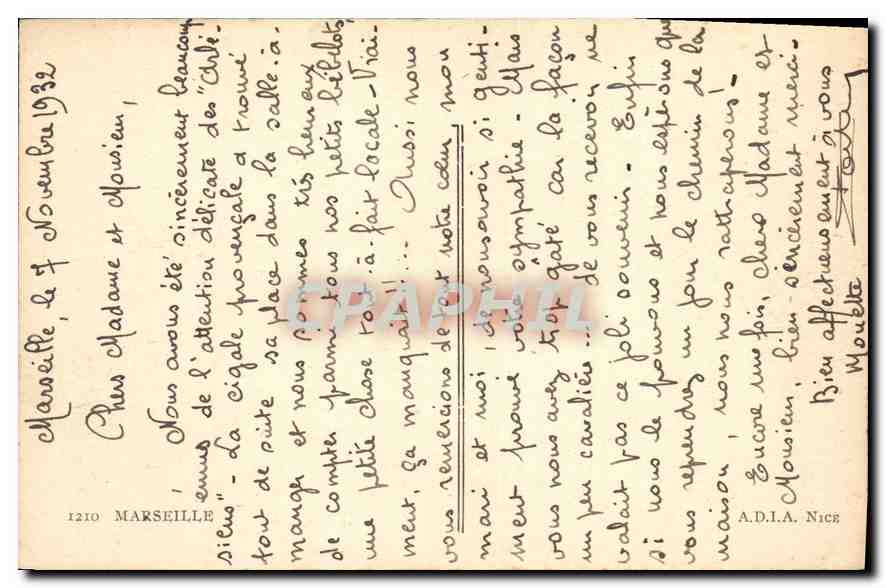 Marseille, le 7 Novembre 1932
Chers Madame et Monsieur,
Nous avons été sincèrement beaucoup
émus de l'attention délicate des "Arlé-
siens" - La cigale provençale a trouvé
tout de suite sa place dans la salle-à-
manger et nous sommes très heureux
de compter parmi tous nos petits bibelots,
une petite chose tout-à-fait locale - Vrai-
ment, ça manquait !!... Aussi nous
vous remercions de tout notre cœur mon
mari et moi, de nous avoir si genti-
ment prouvé votre sympathie - Mais
vous nous avez trop gâté car la façon
un peu cavalière... de vous recevoir ne
valait pas ce joli souvenir - Enfin
si nous le pouvons et nous espérons que
vous reprendrez un jour le chemin de la
maison, nous nous rattraperons ! -
Encore une fois, chers Madame et
Monsieur, bien sincèrement merci -
Bien affectueusement à vous
Mouette
CPAPHIL
1210 MARSEILLE
A.D.I.A. NICE